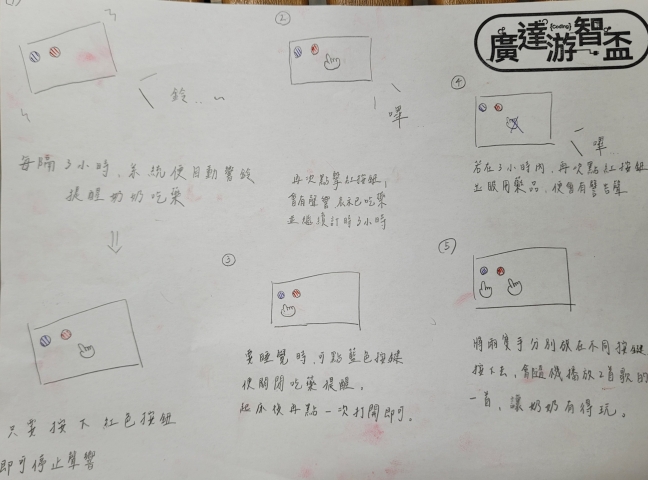 ①
鈴...~
每隔3小時,系統便自動警鈴
提醒奶奶吃藥
只要按下紅色按鈕
即可停止聲響
②
嗶
再次點擊紅按鈕,
會有聲響,表示已吃藥
並繼續計時3小時
③
要睡覺時,可點藍色按鍵
便關閉吃藥提醒。
起床後再點一次打開即可。
廣達游智盃
{Coding}
④
嗶
若在3小時內,再次點紅按鈕
並服用藥品,便會有警告聲
⑤
將兩隻手分別放在不同按鍵
按下去,會隨機播放2首歌的
一首,讓奶奶有得玩。